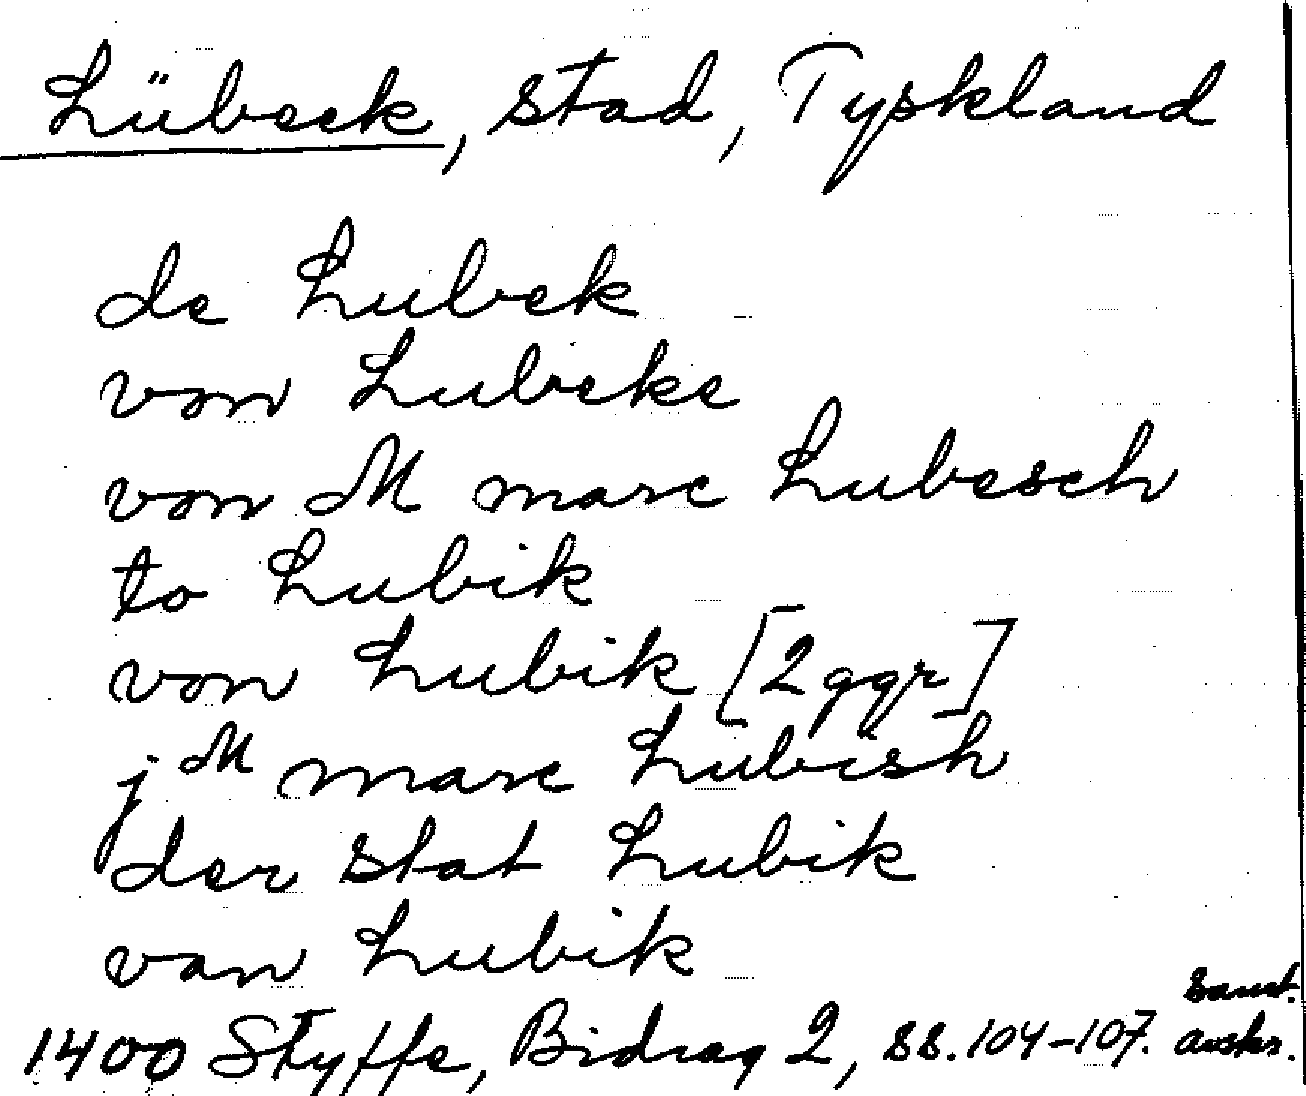 Lübeck, stad, Tyskland
de Lubek
von Lubeke
von M marc Lubesch
to Lubik
von Lubik [2 ggr]
j M marc Lubish
der stat Lubik
van Lubik
samt.
1400 Styffe, Bidrag 2, ss. 104-107. avskr.